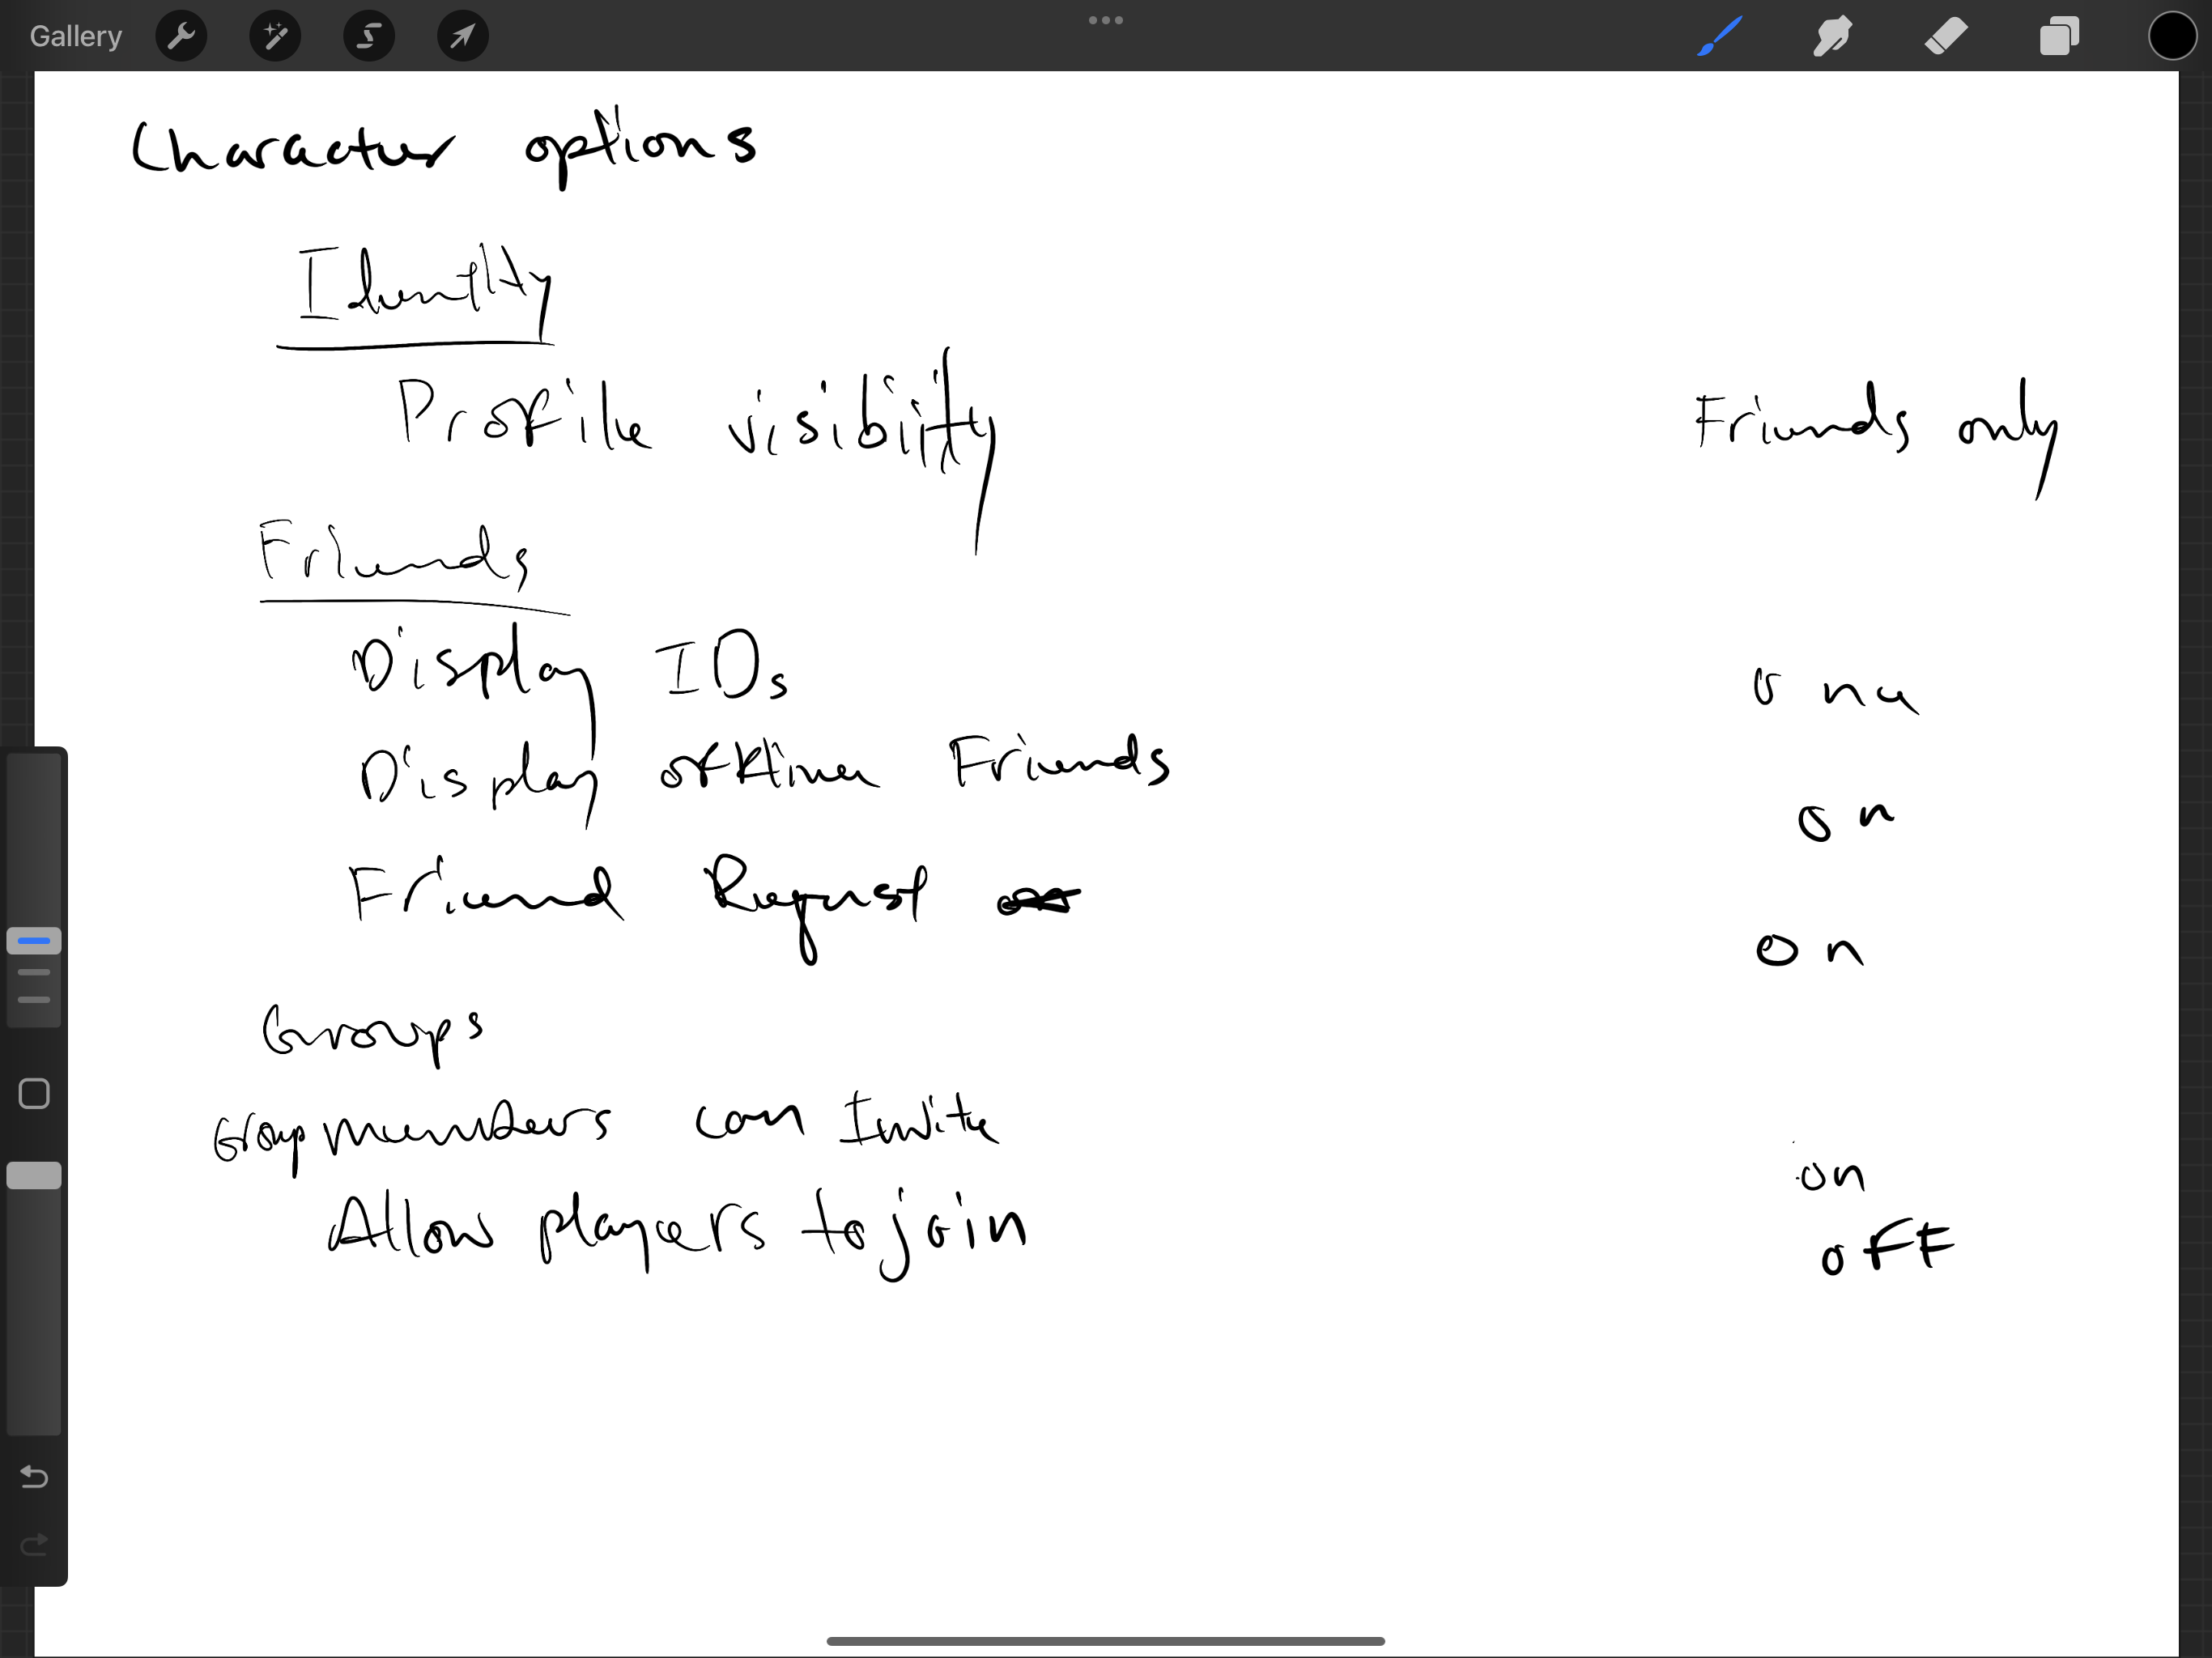 Gallery
Character options
Identity
Profile visibility Friends only
Friends
Display IDs
Display offline Friends on
Friend Request on
Groups
Group members can Invite on
Allow players to join off